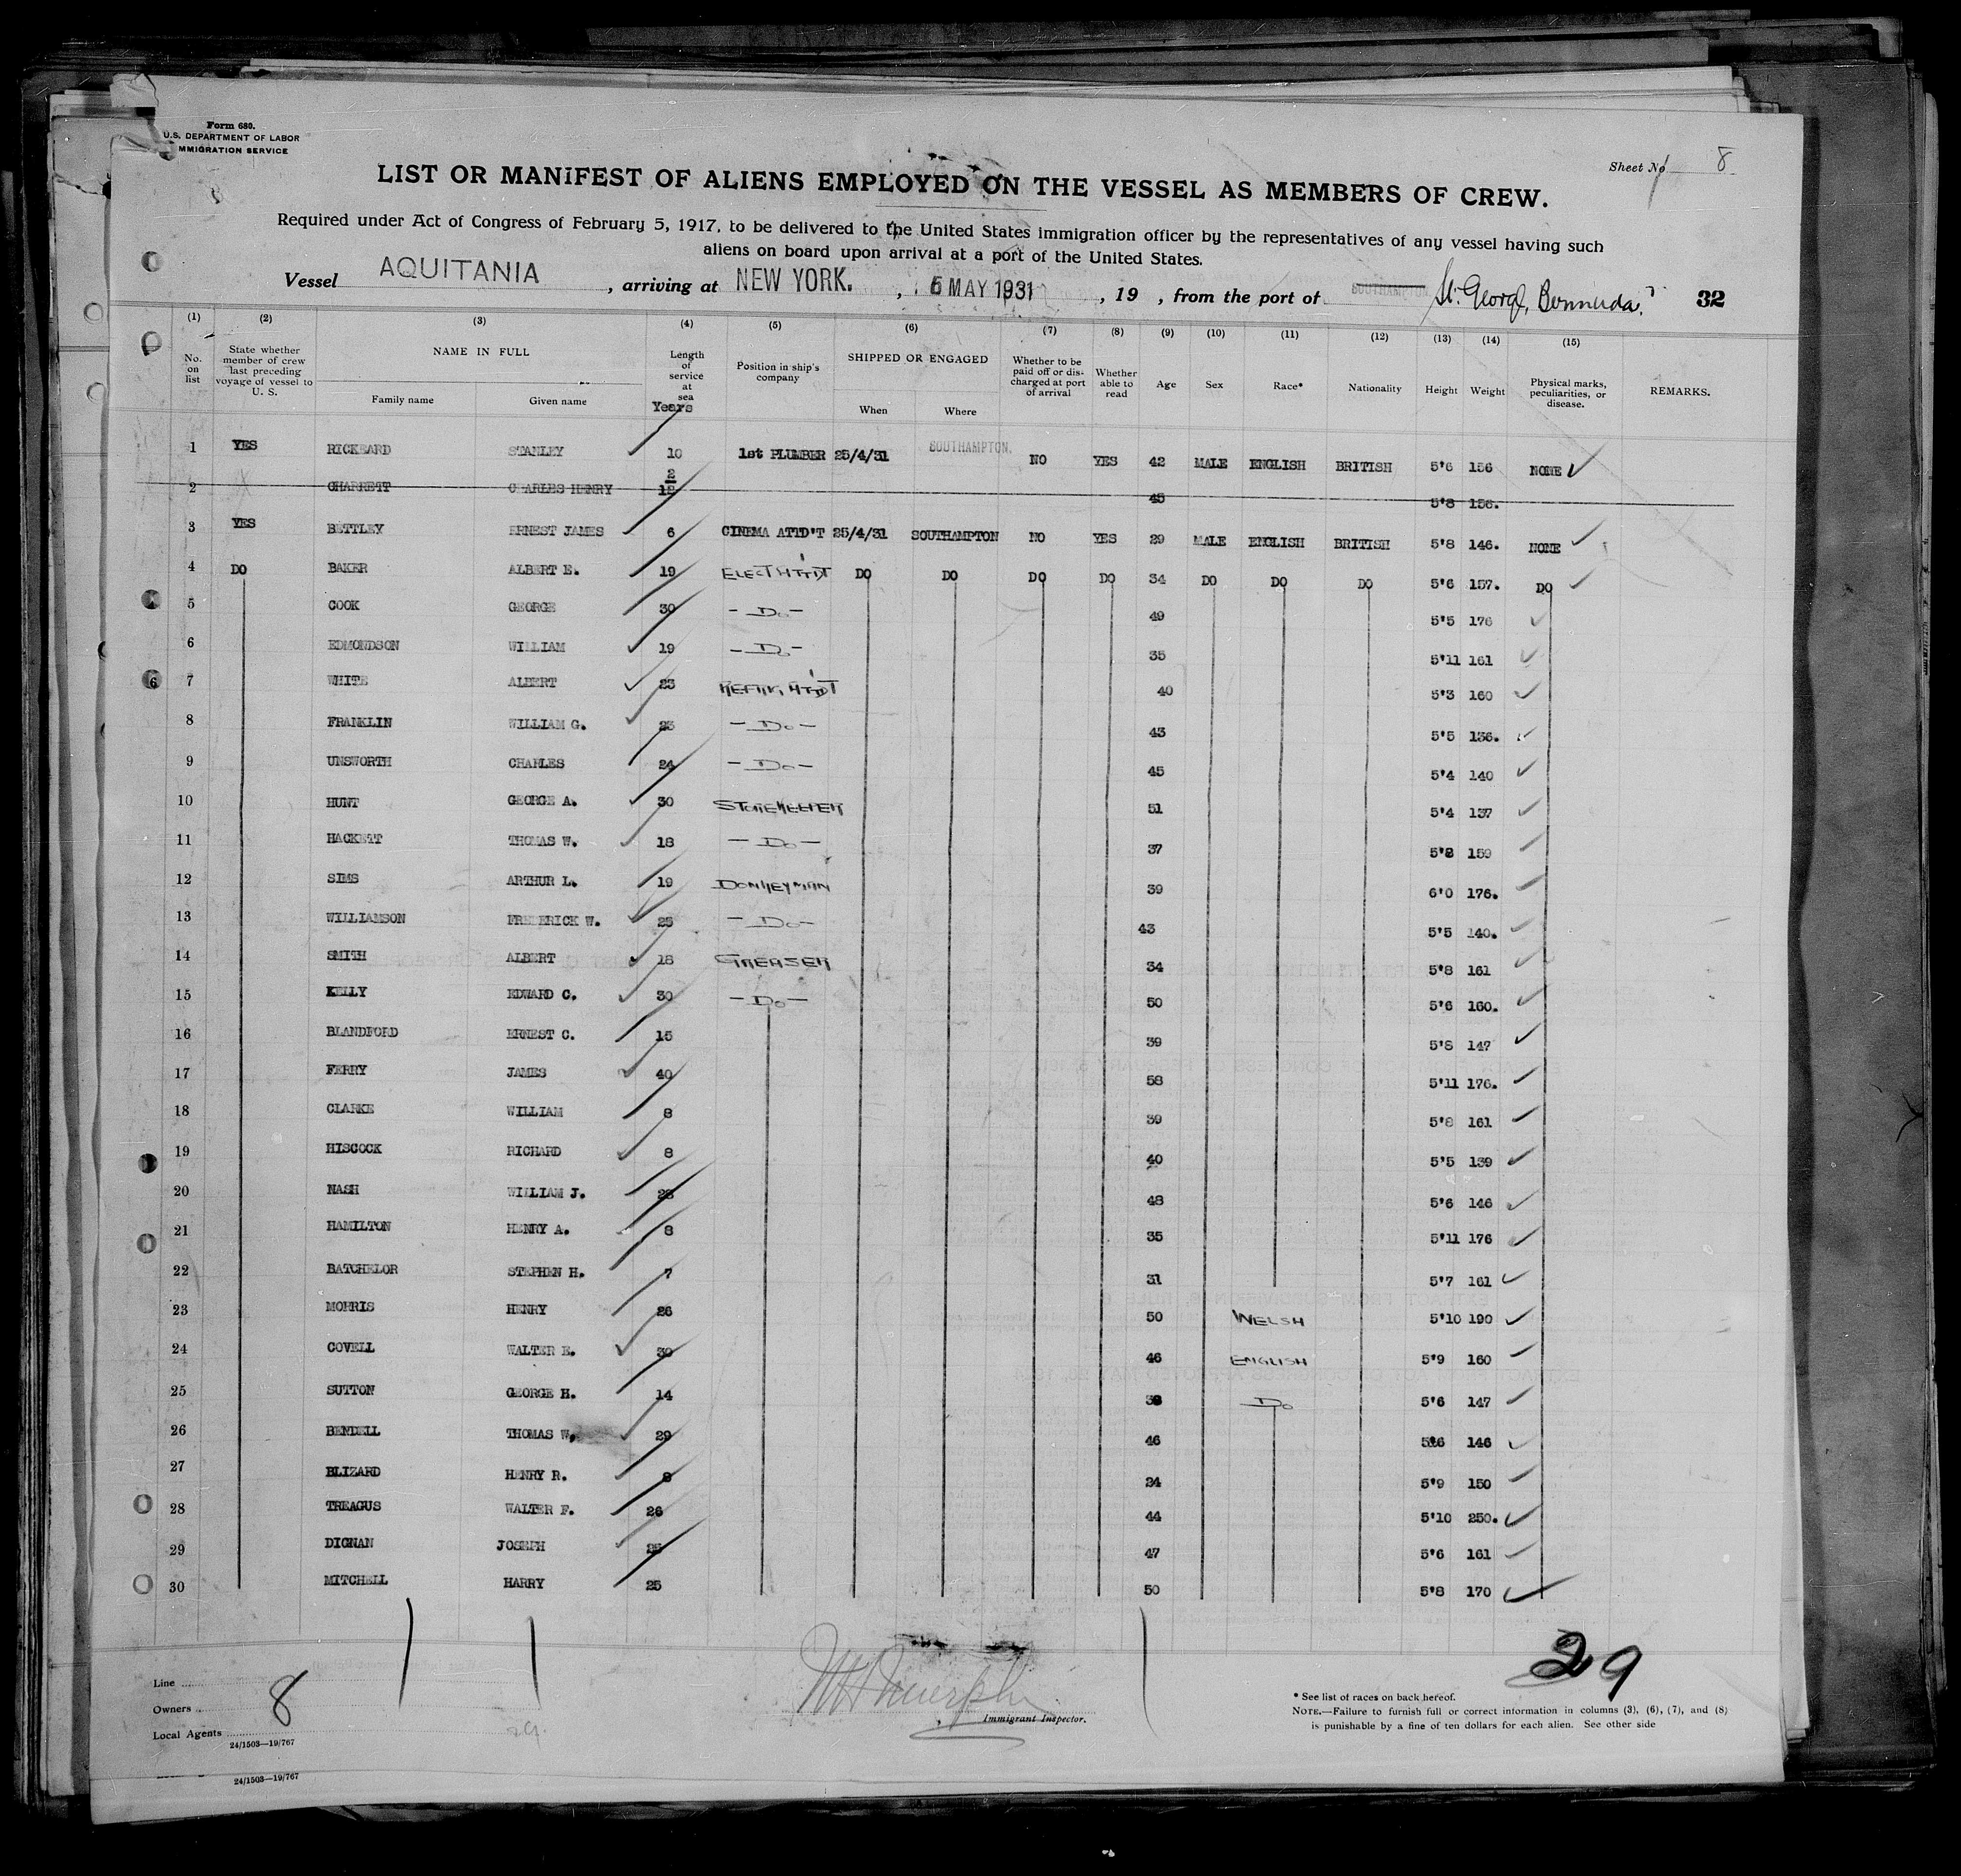 Form 680.
U.S. DEPARTMENT OF LABOR
MMIGRATION SERVICE
Sheet No 8
LIST OR MANIFEST OF ALIENS EMPLOYED ON THE VESSEL AS MEMBERS OF CREW.
Required under Act of Congress of February 5, 1917, to be delivered to the United States immigration officer by the representatives of any vessel having such
aliens on board upon arrival at a port of the United States.
Vessel AQUITANIA , arriving at NEW YORK. , 6 MAY 1931 , 19 , from the port of SOUTHAMPTON St. George, Bermuda. 32
(1) (2) (3) (4) (5) (6) (7) (8) (9) (10) (11) (12) (13) (14) (15)
No. on list State whether member of crew last preceding voyage of vessel to U. S. NAME IN FULL Family name Given name Length of service at sea Years Position in ship's company SHIPPED OR ENGAGED When Where Whether to be paid off or discharged at port of arrival Whether able to read Age Sex Race* Nationality Height Weight Physical marks, peculiarities, or disease. REMARKS.
1 YES RICKEARD STANLEY 10 1st PLUMBER 25/4/31 SOUTHAMPTON. NO YES 42 MALE ENGLISH BRITISH 5'6 156 NONE
2 CHARRETT CHARLES HENRY 2 12 45 5'8 156.
3 YES BETTLEY ERNEST JAMES 6 CINEMA ATTD'T 25/4/31 SOUTHAMPTON NO YES 29 MALE ENGLISH BRITISH 5'8 146. NONE
4 DO BAKER ALBERT E. 19 ELECT ATTD'T DO DO DO DO 34 DO DO DO 5'6 157. DO
5 COOK GEORGE 30 - Do - 49 5'5 176
6 EDMONDSON WILLIAM 19 - Do - 35 5'11 161
7 WHITE ALBERT 23 REFRIG. ATTD'T 40 5'3 160
8 FRANKLIN WILLIAM G. 23 - Do - 43 5'5 136.
9 UNSWORTH CHARLES 24 - Do - 45 5'4 140
10 HUNT GEORGE A. 30 STOREKEEPER 51 5'4 137
11 HACKETT THOMAS W. 18 - Do - 37 5'8 159
12 SIMS ARTHUR L. 19 DONKEYMAN 39 6'0 176.
13 WILLIAMSON FREDERICK W. 25 - Do - 43 5'5 140.
14 SMITH ALBERT 18 GREASER 34 5'8 161
15 KELLY EDWARD C. 30 - Do - 50 5'6 160.
16 BLANDFORD ERNEST C. 15 39 5'8 147
17 FERRY JAMES 40 58 5'11 176.
18 CLARKE WILLIAM 8 39 5'8 161
19 HISCOCK RICHARD 8 40 5'5 139
20 NASH WILLIAM J. 28 48 5'6 146
21 HAMILTON HENRY A. 8 35 5'11 176
22 BATCHELOR STEPHEN H. 7 31 5'7 161
23 MORRIS HENRY 26 50 WELSH 5'10 190
24 COVELL WALTER E. 30 46 ENGLISH 5'9 160
25 SUTTON GEORGE H. 14 Do 5'6 147
26 BENDELL THOMAS W. 29 46 5'6 146
27 BLIZARD HENRY R. 8 34 5'9 150
28 TREAGUS WALTER F. 26 44 5'10 250.
29 DIGNAN JOSEPH 25 47 5'6 161
30 MITCHELL HARRY 25 50 5'8 170
29
Line
Owners 8
Local Agents
24/1503—19/767
Immigrant Inspector.
* See list of races on back hereof.
NOTE.—Failure to furnish full or correct information in columns (3), (6), (7), and (8)
is punishable by a fine of ten dollars for each alien. See other side
24/1503—19/767